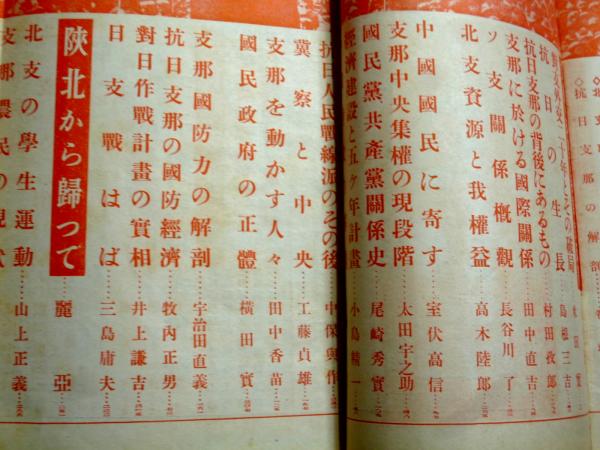 ◇北支
◇抗日支那の解剖
抗日の生長……島根三吉
抗日支那の背後にあるもの……村田孜郎
支那に於ける國際關係……田中直吉
ソ支關係概觀……長谷川了
北支資源と我權益……高木陸郎
中國國民に寄す……室伏高信
支那中央集權の現段階……太田宇之助
國民黨共產黨關係史……尾崎秀實
經濟建設と五ケ年計畫……小島精一
抗日人民戰線派のその後……中保與作
冀察と中央……工藤貞雄
支那を動かす人々……田中香苗
國民政府の正體……橫田實
支那國防力の解剖……宇治田直義
抗日支那の國防經濟……牧內正男
對日作戰計畫の實相……井上謙吉
日支戰はば……三島庸夫
陝北から歸つて……麗亞
北支の學生運動……山上正義
支那農民の現狀